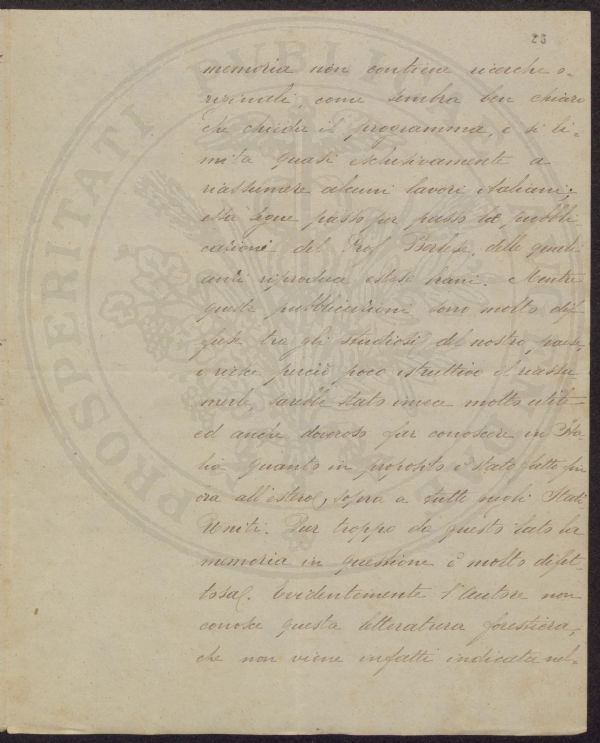 25
memoria non contiene ricerche o-
riginali, come sembra ben chiaro
che chieda il programma, e si li-
mita quasi esclusivamente a
riassumere alcuni lavori italiani;
essa segue passo per passo le pubbli-
cazioni del Prof Berlese, delle quali
anzi riproduce estesi brani. Mentre
queste pubblicazioni sono molto dif-
fuse tra gli studiosi del nostro paese,
e riesce perciò poco istruttivo il riassu
merle, sarebbe stato invece molto utile
ed anche doveroso far conoscere in Ita-
lia quanto in proposito è stato fatto fin
ora all'estero, sopra a tutto negli Stati
Uniti. Pur troppo da questo lato la
memoria in questione è molto difet-
tosa. Evidentemente l'autore non
conosce questa letteratura forestiera,
che non viene infatti indicata nel-
PROSPERITATI PUBLICAE